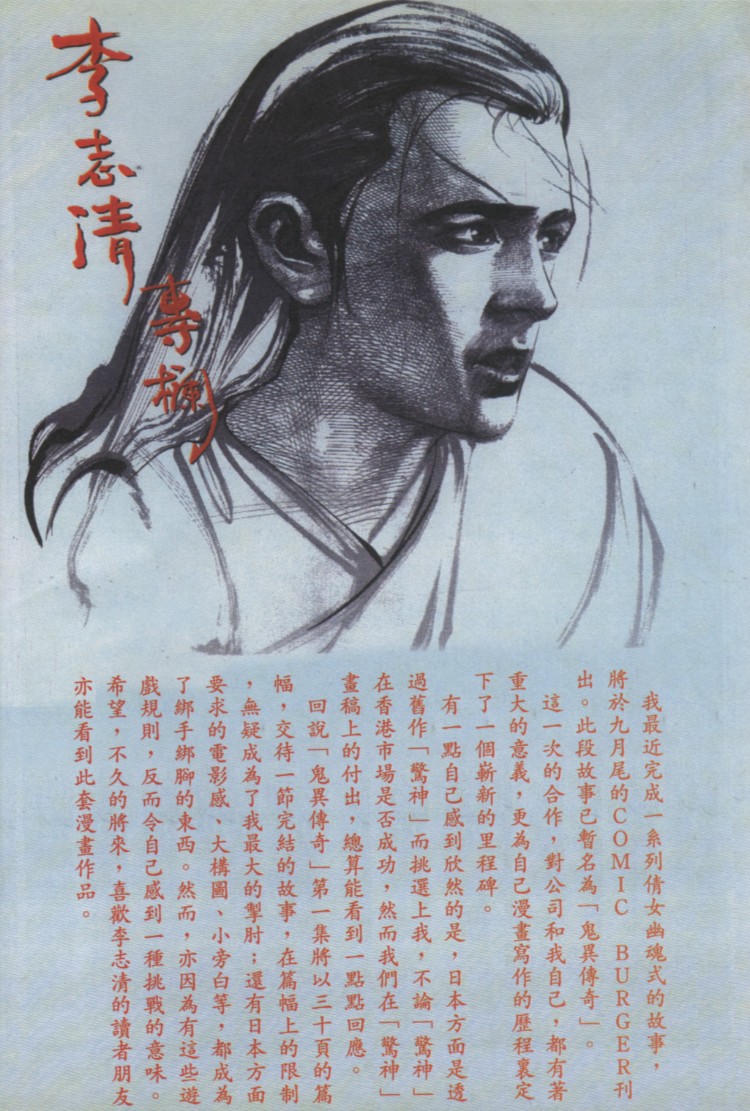 李志清
專欄
我最近完成一系列倩女幽魂式的故事，
將於九月尾的COMIC BURGER刊
出。此段故事已暫名為「鬼異傳奇」。
這一次的合作，對公司和我自己，都有著
重大的意義，更為自己漫畫寫作的歷程裏定
下了一個嶄新的里程碑。
有一點自己感到欣然的是，日本方面是透
過舊作「驚神」而挑選上我，不論「驚神」
在香港市場是否成功，然而我們在「驚神」
畫稿上的付出，總算能看到一點點回應。
回說「鬼異傳奇」第一集將以三十頁的篇
幅，交待一節完結的故事，在篇幅上的限制
，無疑成為了我最大的掣肘；還有日本方面
要求的電影感、大構圖、小旁白等，都成為
了綁手綁腳的東西。然而，亦因為有這些遊
戲規則，反而令自己感到一種挑戰的意味。
希望，不久的將來，喜歡李志清的讀者朋友
亦能看到此套漫畫作品。